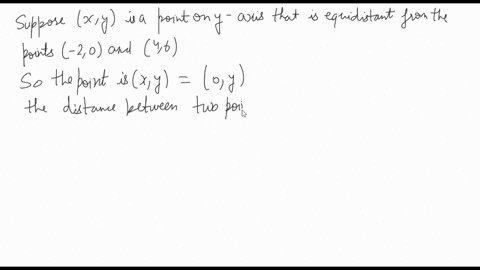 Suppose (x,y) is a point on y-axis that is equidistant from the
points (-2,0) and (4,6)
So the point is (x,y) = (0,y)
the distance between two poi